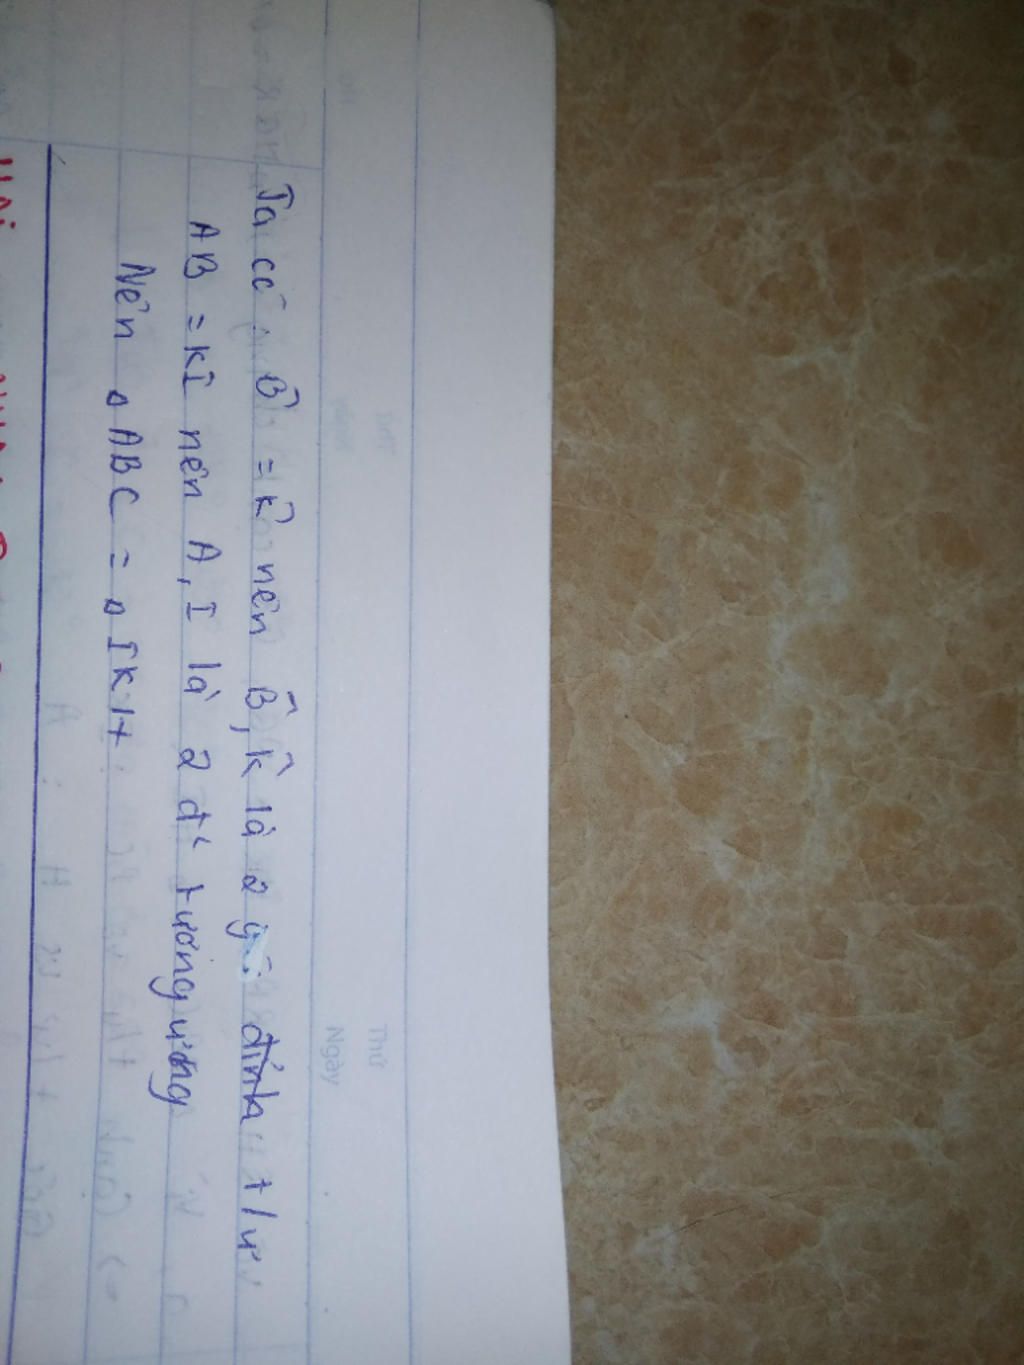 Ta có: B̂ = K̂ nên B̂, K̂ là 2 đỉnh t/ư
AB = KI nên A, I là 2 đ' tương ứng
Nên ▵ABC = ▵IKH
Thứ
Ngày